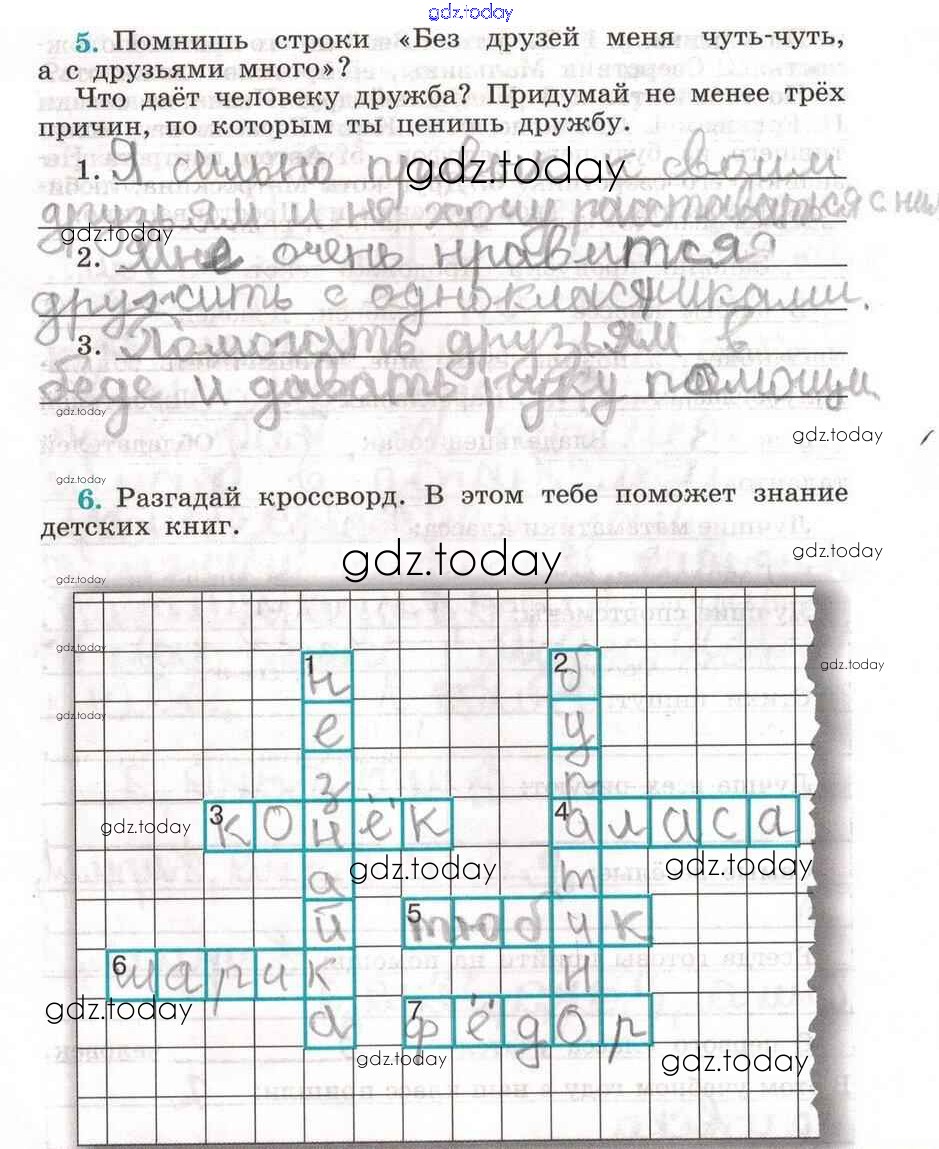 gdz.today
5. Помнишь строки «Без друзей меня чуть-чуть,
а с друзьями много»?
Что даёт человеку дружба? Придумай не менее трёх
причин, по которым ты ценишь дружбу.
gdz.today
1. Я сильно к своим
друзьям и не хочу расставаться с ним
gdz.today
2. Мне очень нравится
дружить с одноклассниками.
3. Помогать друзьям в
беде и давать руку помощи
gdz.today
gdz.today
gdz.today
6. Разгадай кроссворд. В этом тебе поможет знание
детских книг.
gdz.today
gdz.today
gdz.today
gdz.today
gdz.today
gdz.today
1 незнайка
2 буратино
3 конёк
4 аласа
gdz.today
gdz.today
gdz.today
5 тюбик
6 шарик
gdz.today
7 фёдор
gdz.today
gdz.today